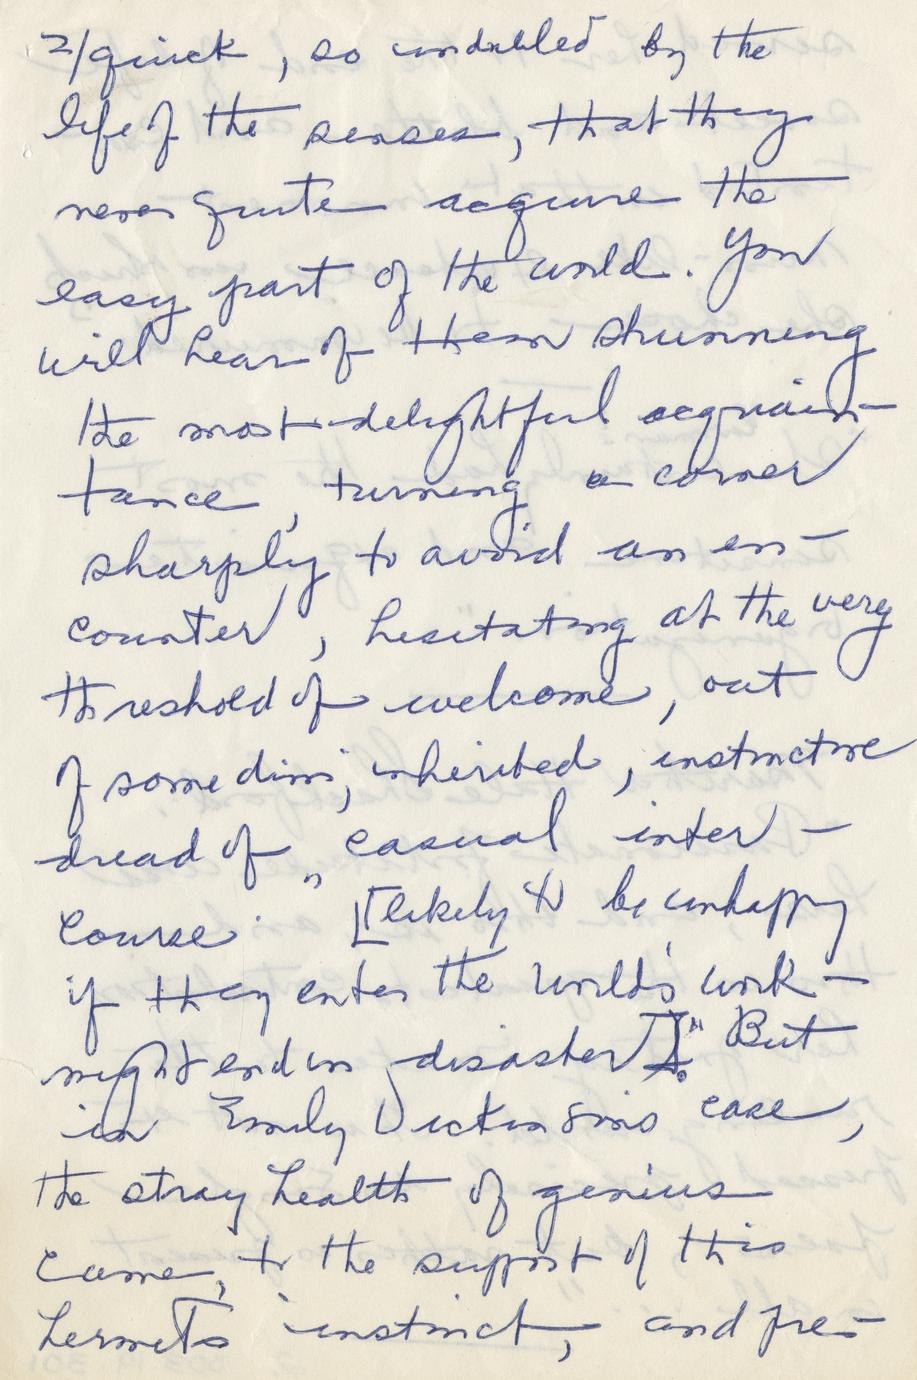 2/quick, so undulled by the
life of the senses, that they
never quite acquire the
easy part of the world. You
will hear of them shunning
the most delightful acquain-
tance, turning a corner
sharply to avoid an en-
counter, hesitating at the very
threshold of welcome, out
of some dim, inherited, instinctive
dread of casual inter-
course." [likely to be unhappy
if they enter the world's work -
might end in disaster]." But
in Emily Dickinson's case,
the stray health of genius
came, to the support of this
hermit's instinct, and pre-